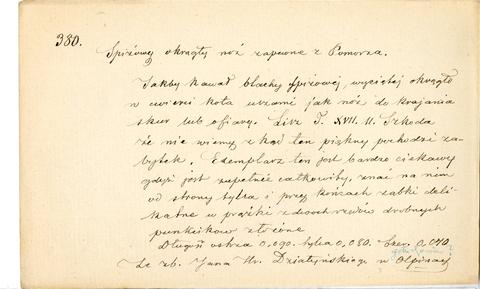 380.
Spiżowy okrągły nóż zapewne z Pomorza.
Jakby kawał blachy spiżowej, wyciętej okrągło
w ćwierci koła uważać jak nóż do krajania
skór lub ofiary. Liiz T. XVII. 11. Szkoda
że nie wiemy zkąd ten piękny pochodzi za-
bytek. Exemplarz ten jest bardzo ciekawy
gdyż jest zupełnie całkowity, znać na nim
od strony tylca i przy końcach ząbki deli-
katne w prążki z dwóch rzędów drobnych
punkcików złożone
Długość ostrza 0,090. tylca 0,080. Szer. 0,040
Ze zb. Jana Hr. Działyńskiego w